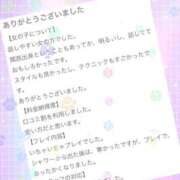 ありがとうございました
【女の子について】
話しやすい女の方でした。
関西出身とともあってか、明るいし、話してて
おもしろかったです。
スタイルも良かったし、テクニックもすごかったで
す。
ありがとうございました。
【料金納得度】
口コミ割を利用して、
安い方だと思います。
【プレイ内容】
いちゃいちゃプレイでした。
シャワーから出た後は、寒かったので、プレイで
あったかくなりました。